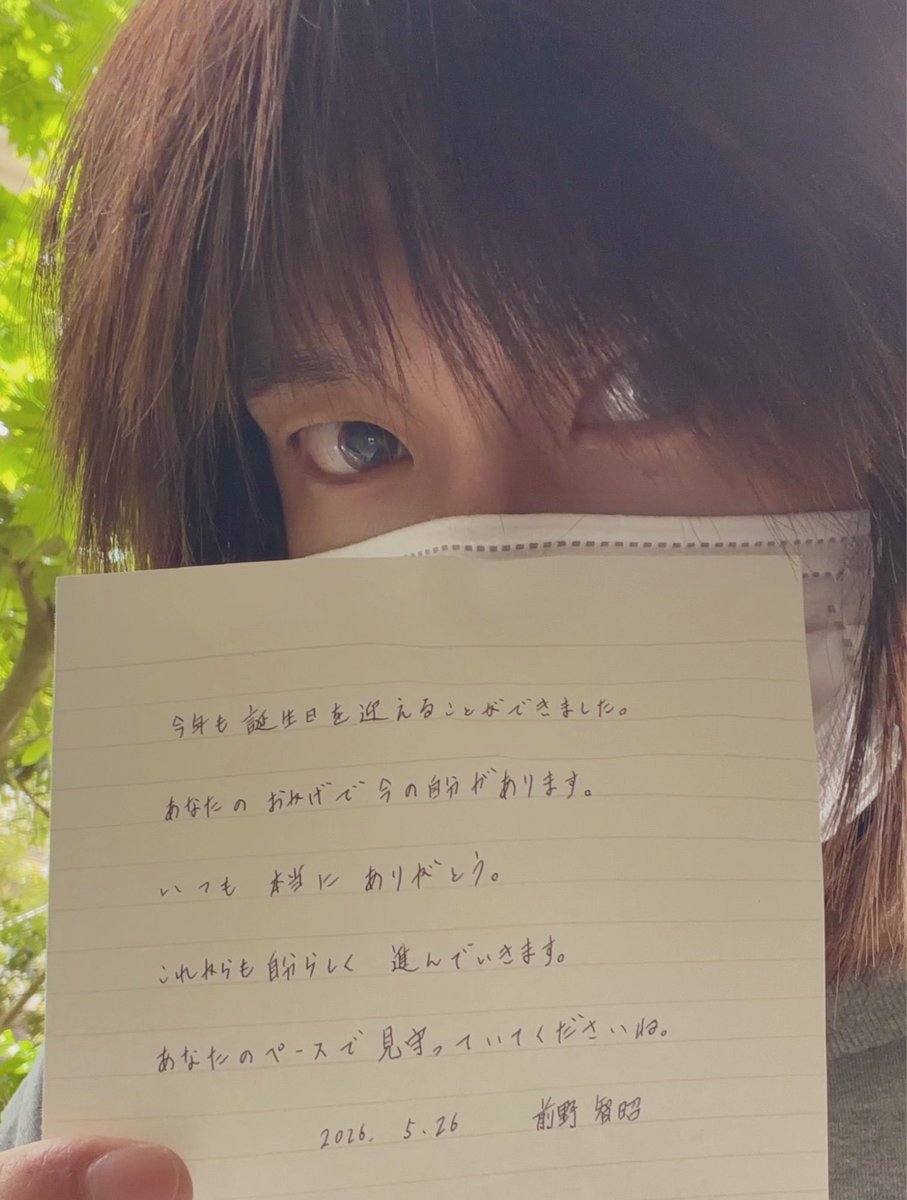 今年も誕生日を迎えることができました。
あなたのおかげで今の自分があります。
いつも 本当に ありがとう。
これからも自分らしく 進んでいきます。
あなたのペースで見守っていてくださいね。
2026. 5.26 前野 智昭